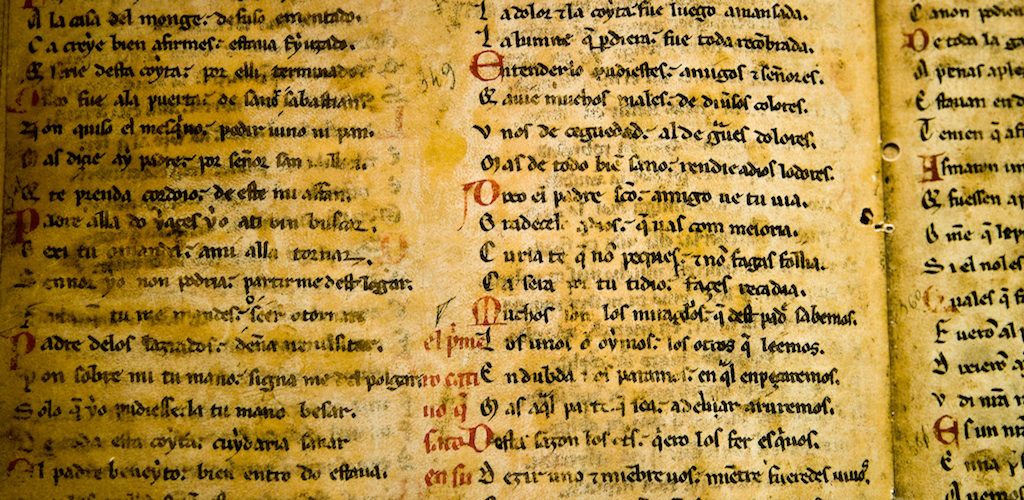 A la casa del monge: de suso ementado.
Ca creye bien afirmes: estaua fyuzado.
desta coyta: por elli, terminado
fue ala puerta: de sant sabastian.
Non quiso el mesq̄no: pedir uino ni pan.
Mas dizie ay padre: por señor san
te prenda cordoio: de este mi affan.
Padre alla do yazes yo ati vin buscar.
alla tornar.
Sennor yo non podria: partirme dest logar.
tu me mandes: o tornar
Padre delos lazrados: deña me uisitar.
pon sobre mi tu mano: signa me del polgar.
Solo q̄ yo pudiesse: la tu mano besar.
De toda esta coyta: cuydaria sanar
El padre beneyto: bien entro do estaua.
el p̄me
uo q̄
en su
La dolor ⁊ la coyta: fue luego amansada.
La lumne q̄ pdiera: fue toda recobrada.
349
Entender lo pudiestes: amigos ⁊ señores.
Q̄ auie muchos males: de diuͥsos colores.
Vnos de ceguedad: al de gͣues dolores.
Mas de todo biē sano: rendie a dios lodores.
Dixo el padre sc̄o: amigo ue tu uia.
Gradecel a dios: q̄ uas com meioria.
Curia te q̄ nō peques: ⁊ nō fagas follia.
Ca sera por tu tidio: fazes recadia.
Muchos son los miraglos: q̄ dest pad̄ sabemos.
Los unos ō oymos: los otros q̄ leemos.
En dubda nos paramos: en q̄l enpeçaremos.
Mas aq̄l part q̄ sea: adebiar auremos.
Desta sazon los ots. q̄ero los fer esq̄uos.
Dezir uno ⁊ miēbre uos: miētre fueredes uiuos.
Canon podien
De toda la g
Apenas aple
Estauan end
Temen q̄ afi
Asmaron un
Q̄ fuessen ap
Si el noles
Quales q̄ f
Fueron al p
vdi
Es un nr̄